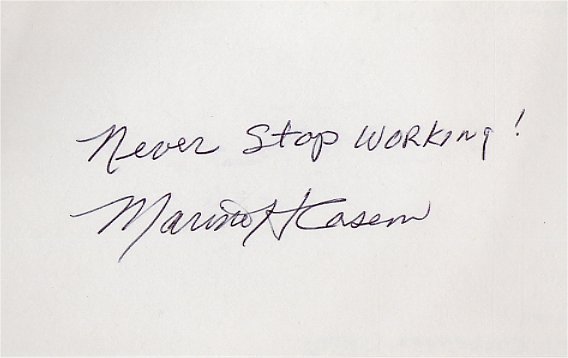 Never Stop WORKing!
Marino H Casem